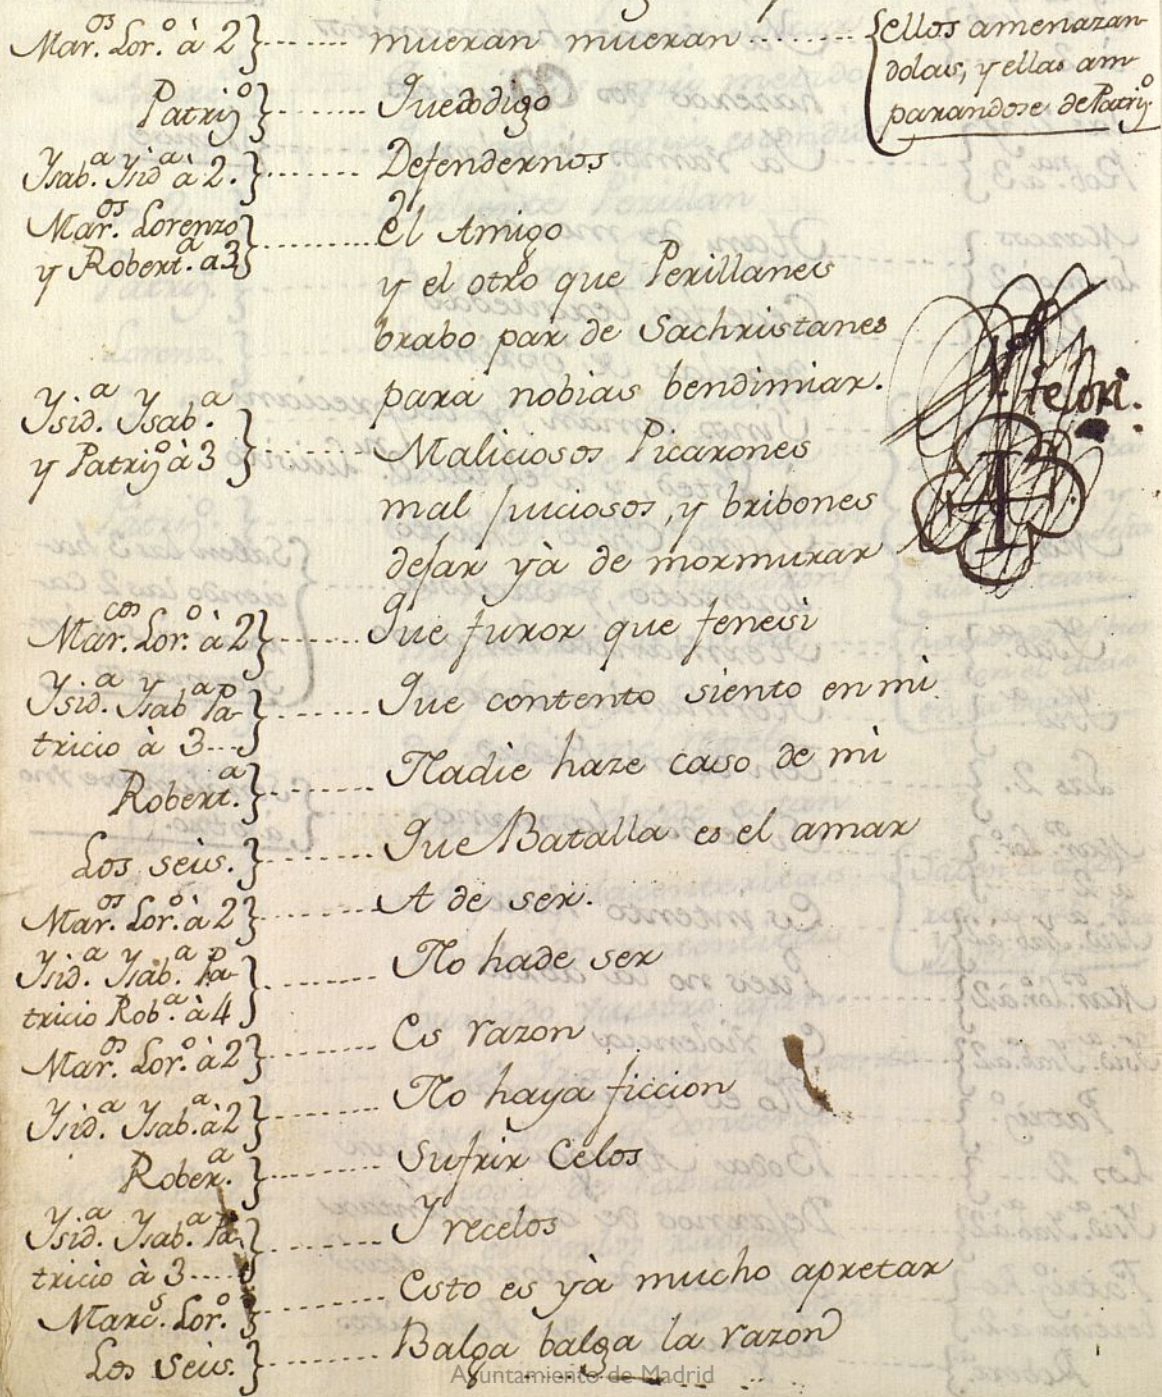 Mar.os Lor.o à 2} ------- mueran mueran ------- {ellos amenazan-
dolas, y ellas am-
parandose de Patri.o
Patrij.o} -------- Quedodigo
Ysab.a Ysid.a à 2.} ------- Defendernos
Mar.os Lorenzo
y Robert.a a3} -------- el Amigo
y el otro que Perillanes
brabo par de Sachristanes
para nobias bendimiar.
Ysid.a Ysab.a
y Patrij.o à 3} ------- Maliciosos Picarones
mal Juiciosos, y bribones
dejar yà de mormurar
Mar.cos Lor.o à 2} ------ Que furor que feneisi
Ysid.a Ysab.a Pa-
tricio à 3---} ------ Que contento siento en mi.
Robert.a} ------ Nadie haze caso de mi
Los seis.} ------- Que Batalla es el amar
Mar.os Lor.o à 2} ------- A de ser.
Ysid.a Ysab.a Pa-
tricio Rob.a à 4} ------ No hade ser
Mar.os Lor.o à 2} ------- Es razon
Ysid.a Ysab.a à 2} ------- No haya ficcion
Rober.a} ------- Sufrir Celos
Ysid.a Ysab.a Pa-
tricio à 3----} ------- Y recelos
Marc.s Lor.o} ------- Esto es yà mucho apretar
Los Seis.} ------- Balga balga la razon
Ayuntamiento de Madrid